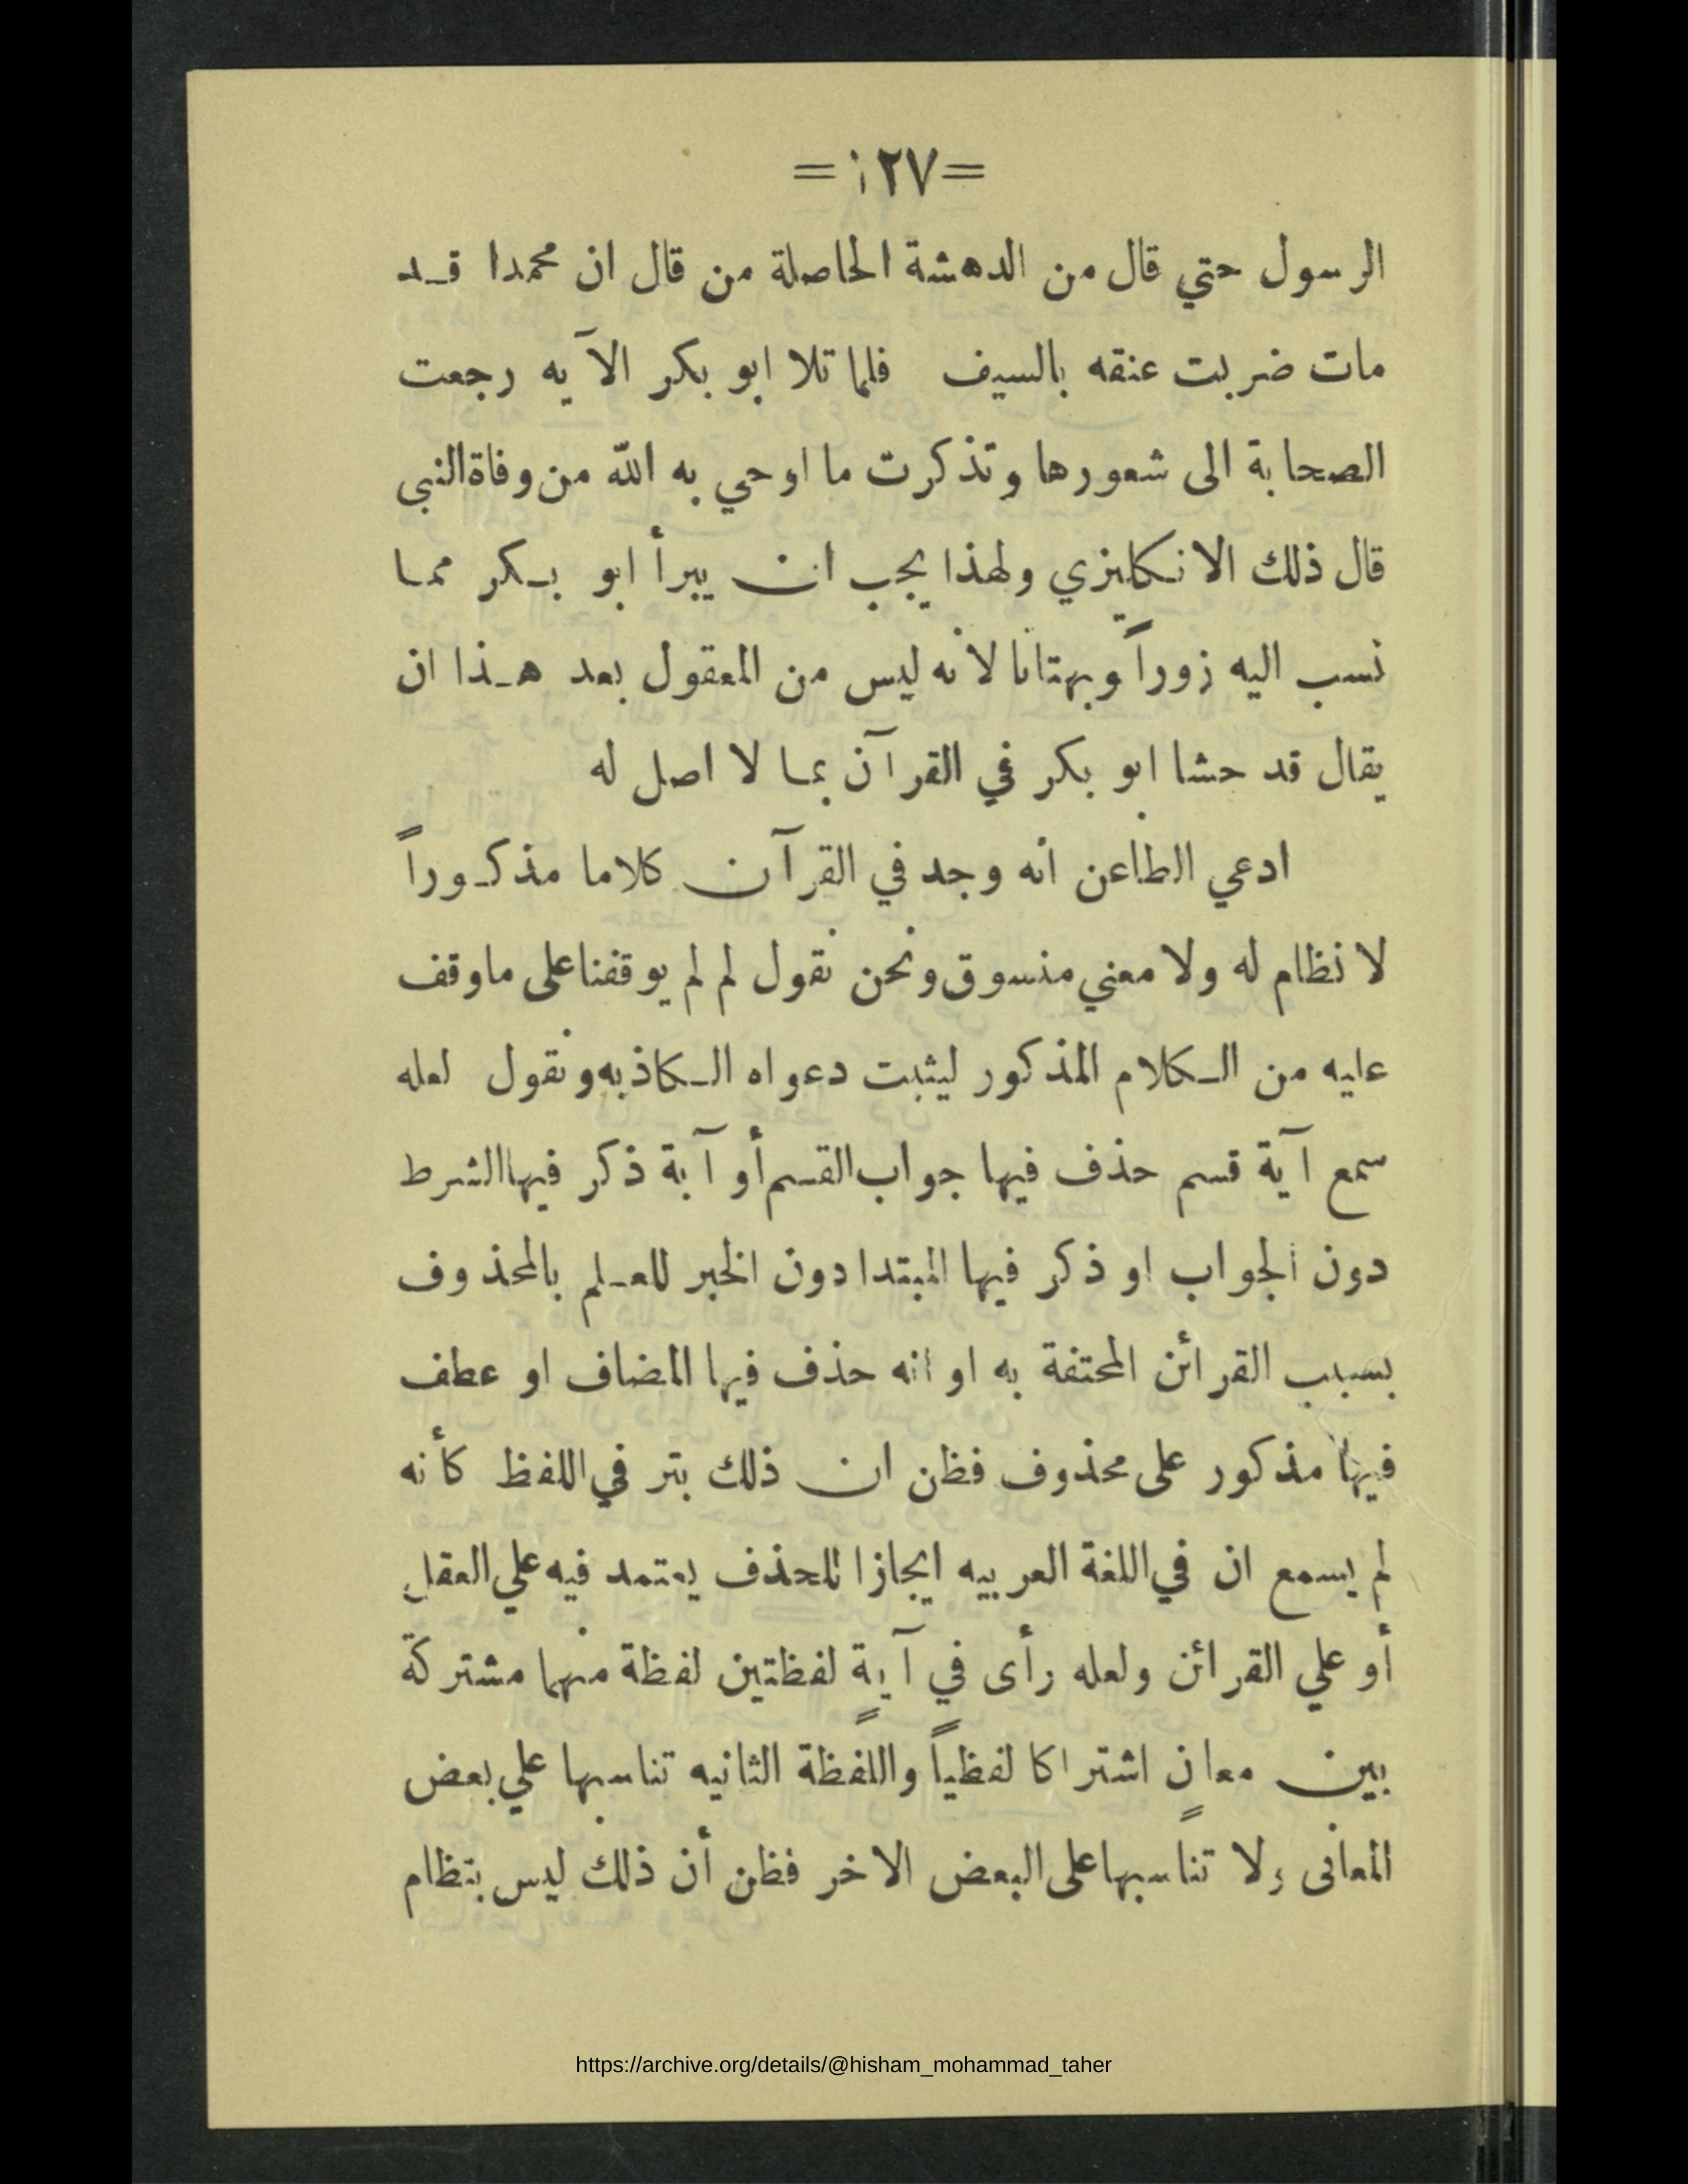 =١٢٧=
الرسول حتي قال من الدهشة الحاصلة من قال ان محمدا قد
مات ضربت عنقه بالسيف فلما تلا ابو بكر الآيه رجعت
الصحابة الى شعورها وتذكرت ما اوحي به الله من وفاة النبي
قال ذلك الانكليزي ولهذا يجب ان يبرأ ابو بكر مما
نسب اليه زوراً وبهتانا لانه ليس من المعقول بعد هذا ان
يقال قد حشا ابو بكر في القرآن بما لا اصل له
ادعي الطاعن انه وجد في القرآن كلاما مذكوراً
لا نظام له ولا معني منسوق ونحن نقول لم لم يوقفنا على ماوقف
عليه من الكلام المذكور ليثبت دعواه الكاذبه ونقول لعله
سمع آية قسم حذف فيها جواب القسم أو آية ذكر فيها الشرط
دون الجواب او ذكر فيها المبتدا دون الخبر للعلم بالمحذوف
بسبب القرائن المحتفة به او انه حذف فيها المضاف او عطف
فيها مذكور على محذوف فظن ان ذلك بتر في اللفظ كأنه
لم يسمع ان في اللغة العربيه ايجازا للحذف يعتمد فيه علي العقل
أو علي القرائن ولعله رأى في آيةٍ لفظتين لفظة منهما مشتركة
بين معانٍ اشتراكا لفظياً واللفظة الثانيه تناسبها علي بعض
المعانى ولا تناسبها على البعض الاخر فظن أن ذلك ليس بنظام
https://archive.org/details/@hisham_mohammad_taher